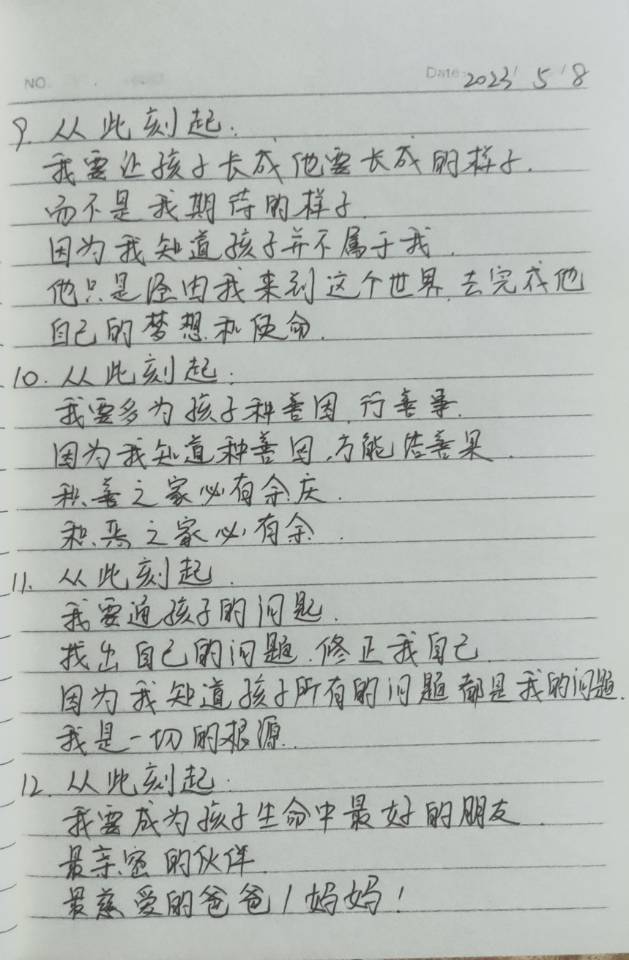 NO.
Date: 2023 / 5 / 8
9. 从此刻起:
我要让孩子长成他要长成的样子.
而不是我期待的样子.
因为我知道孩子并不属于我.
他只是经由我来到这个世界.去完成他
自己的梦想和使命.
10. 从此刻起:
我要多为孩子种善因.行善事.
因为我知道种善因.方能结善果.
积善之家必有余庆.
积恶之家必有余.
11. 从此刻起.
我要通孩子的问题.
找出自己的问题.修正我自己.
因为我知道孩子所有的问题都是我的问题.
我是一切的根源.
12. 从此刻起.
我要成为孩子生命中最好的朋友.
最亲密的伙伴.
最慈爱的爸爸/妈妈!